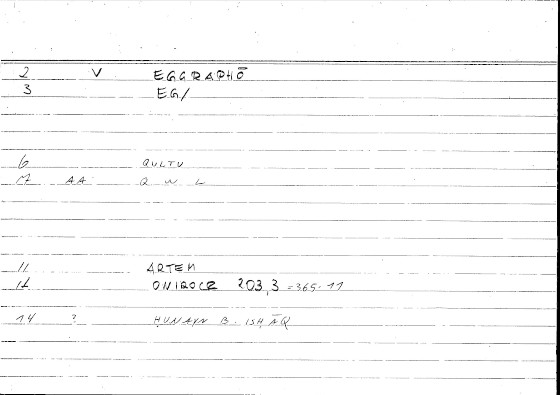 2 V EGGRAPHŌ
3 EG/
6 QULTU
7 AA Q W L
11 ARTEM
12 ONIROCR 203,3 =365-11
14 ? HUNAYN B. ISHĀQ